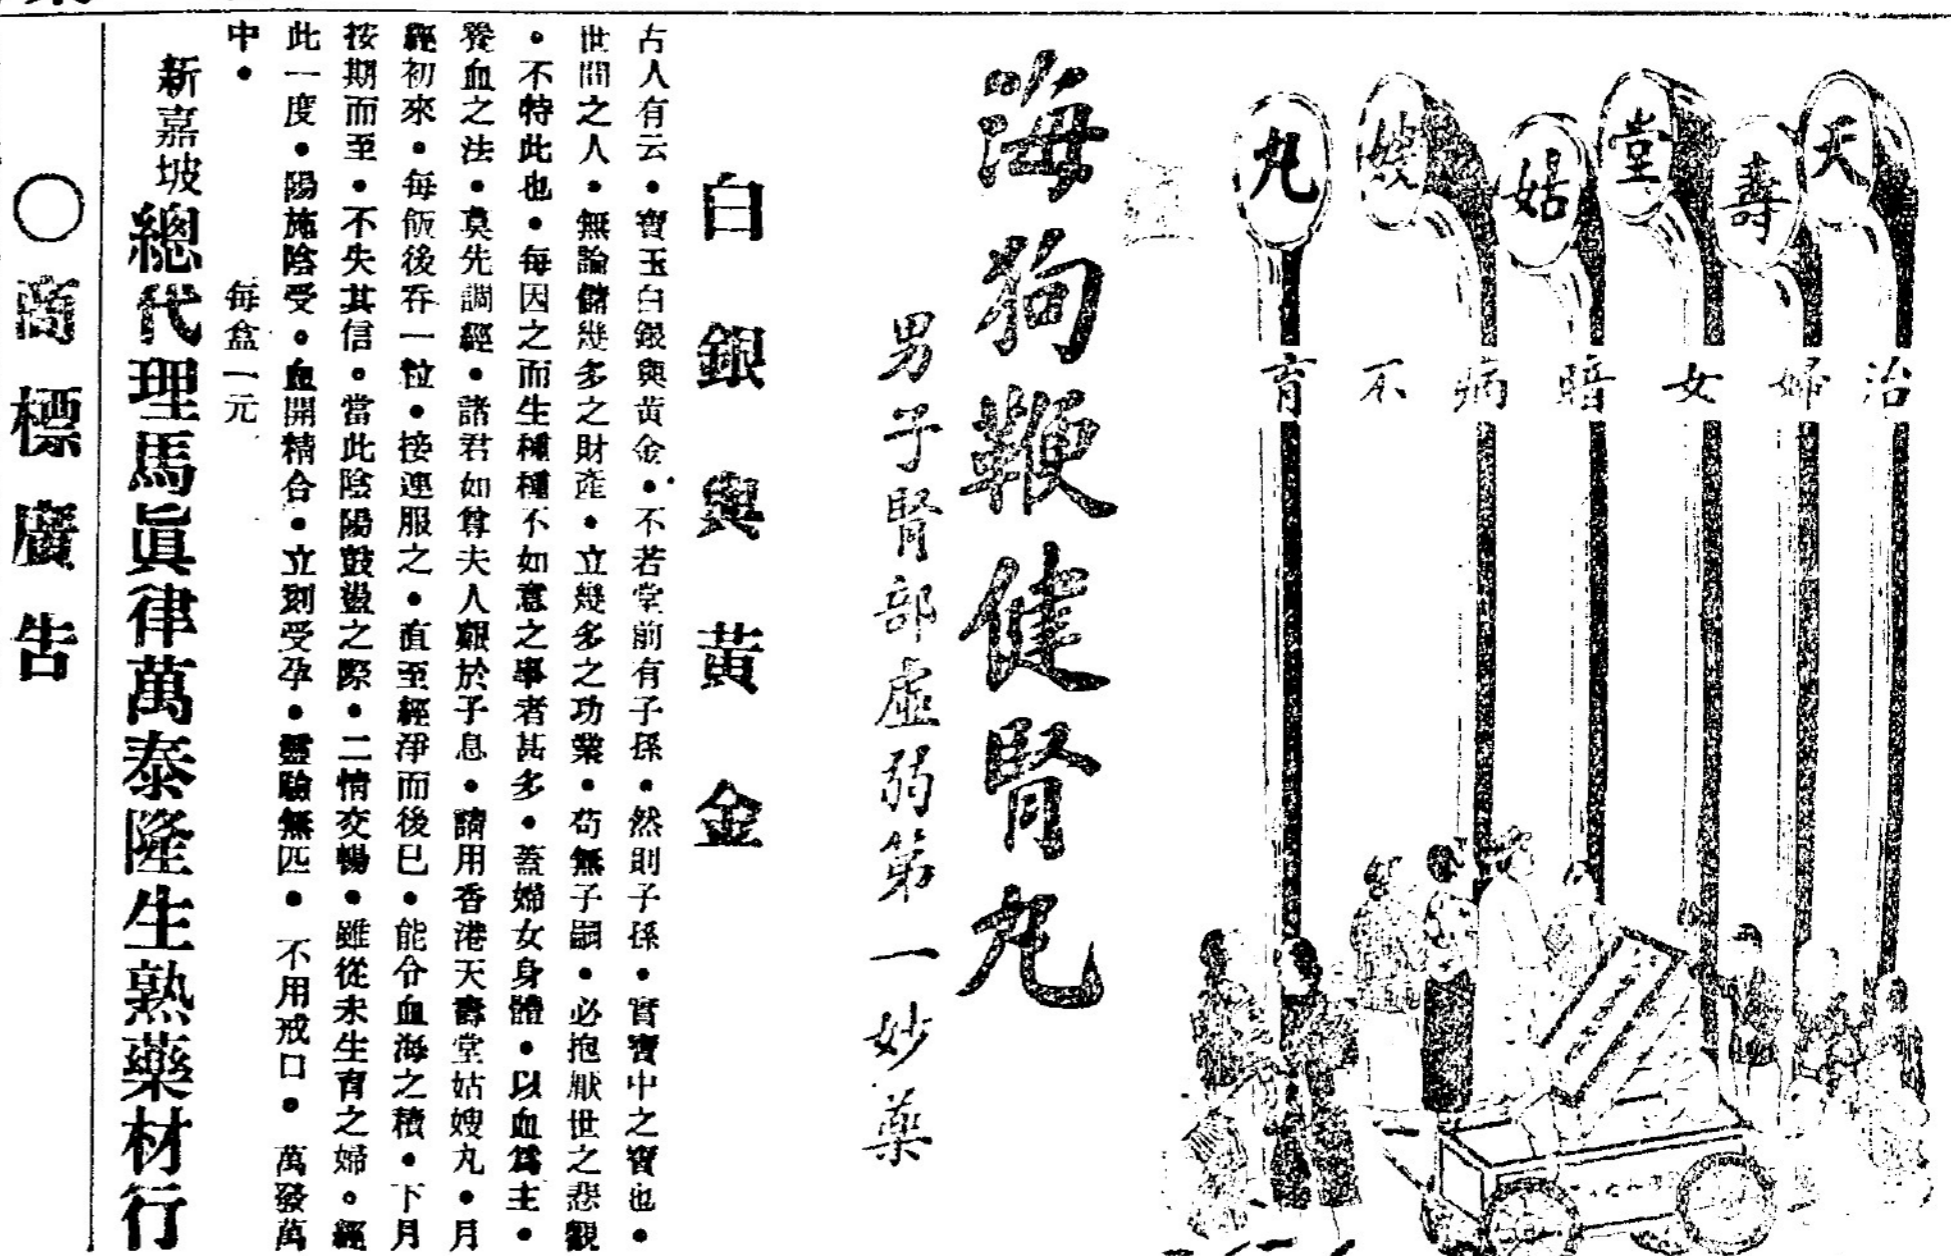 天壽堂姑嫂丸
治婦女暗病不育
海狗鞭健腎丸
男子腎部虛弱第一妙藥
白銀與黃金
古人有云•寶玉白銀與黃金•不若堂前有子孫•然則子孫•實寶中之寶也•
世間之人•無論儲幾多之財產•立幾多之功業•苟無子嗣•必抱厭世之悲觀
•不特此也•每因之而生種種不如意之事者甚多•蓋婦女身體•以血爲主•
養血之法•莫先調經•諸君如尊夫人艱於子息•請用香港天壽堂姑嫂丸•月
經初來•每飯後吞一粒•接連服之•直至經淨而後已•能令血海之積•下月
按期而至•不失其信•當此陰陽鼓盪之際•二情交暢•雖從未生育之婦•經
此一度•陽施陰受•血開精合•立刻受孕•靈驗無匹•不用戒口•萬發萬
中•
每盒一元
新嘉坡總代理馬眞律萬泰隆生熟藥材行
○商標廣告